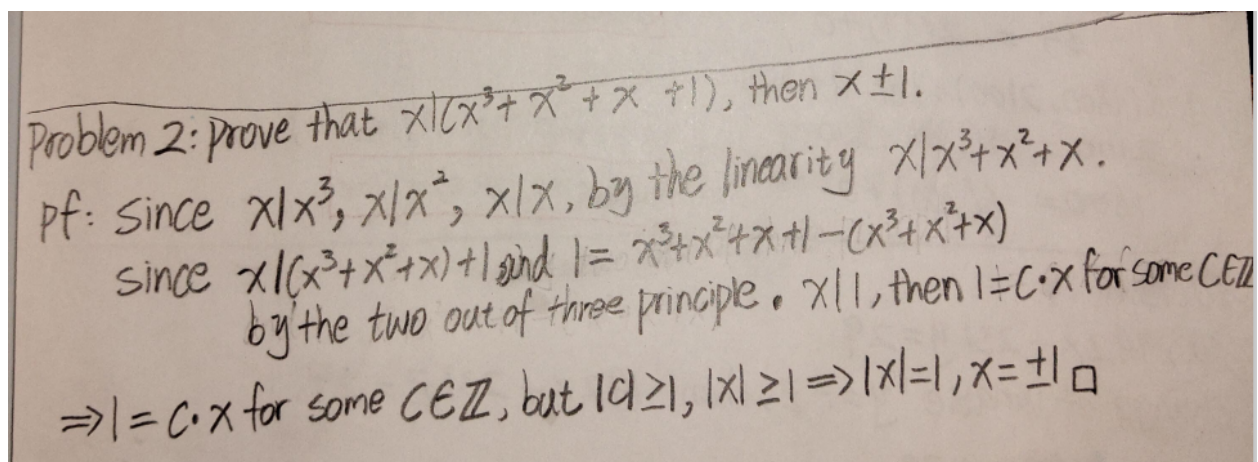 Problem 2: prove that x|(x³+ x² + x +1), then x ±1.
pf: since x|x³, x|x², x|x, by the linearity x|x³+x²+x.
since x|(x³+x²+x)+1 and 1= x³+x²+x+1-(x³+x²+x)
by the two out of three principle. x|1, then 1=C·x for some C∈ℤ
⇒1=C·x for some C∈ℤ, but |C|≥1, |x|≥1⇒|x|=1, x=±1 □